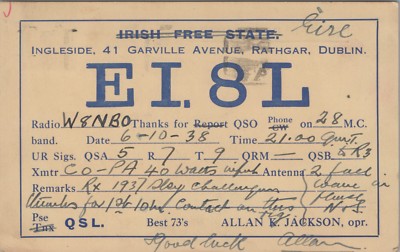 IRISH FREE STATE. Eire
INGLESIDE, 41 GARVILLE AVENUE, RATHGAR, DUBLIN.
EI.8L
Radio W8NBO Thanks for Report QSO Phone CW on 28 M.C.
band. Date 6-10-38 Time 21.00 G.M.T.
UR Sigs. QSA 5 R 7 T. 9 QRM — QSB. to R3
Xmtr CO-PA 40 watts input Antenna 2 full
Remarks Rx 1937 Sky Challenger wave in
Thanks for 1st 10m. Contact on this phase
Pse Tnx QSL. Best 73's ALLAN K. JACKSON, opr. N-S
Good luck Allan